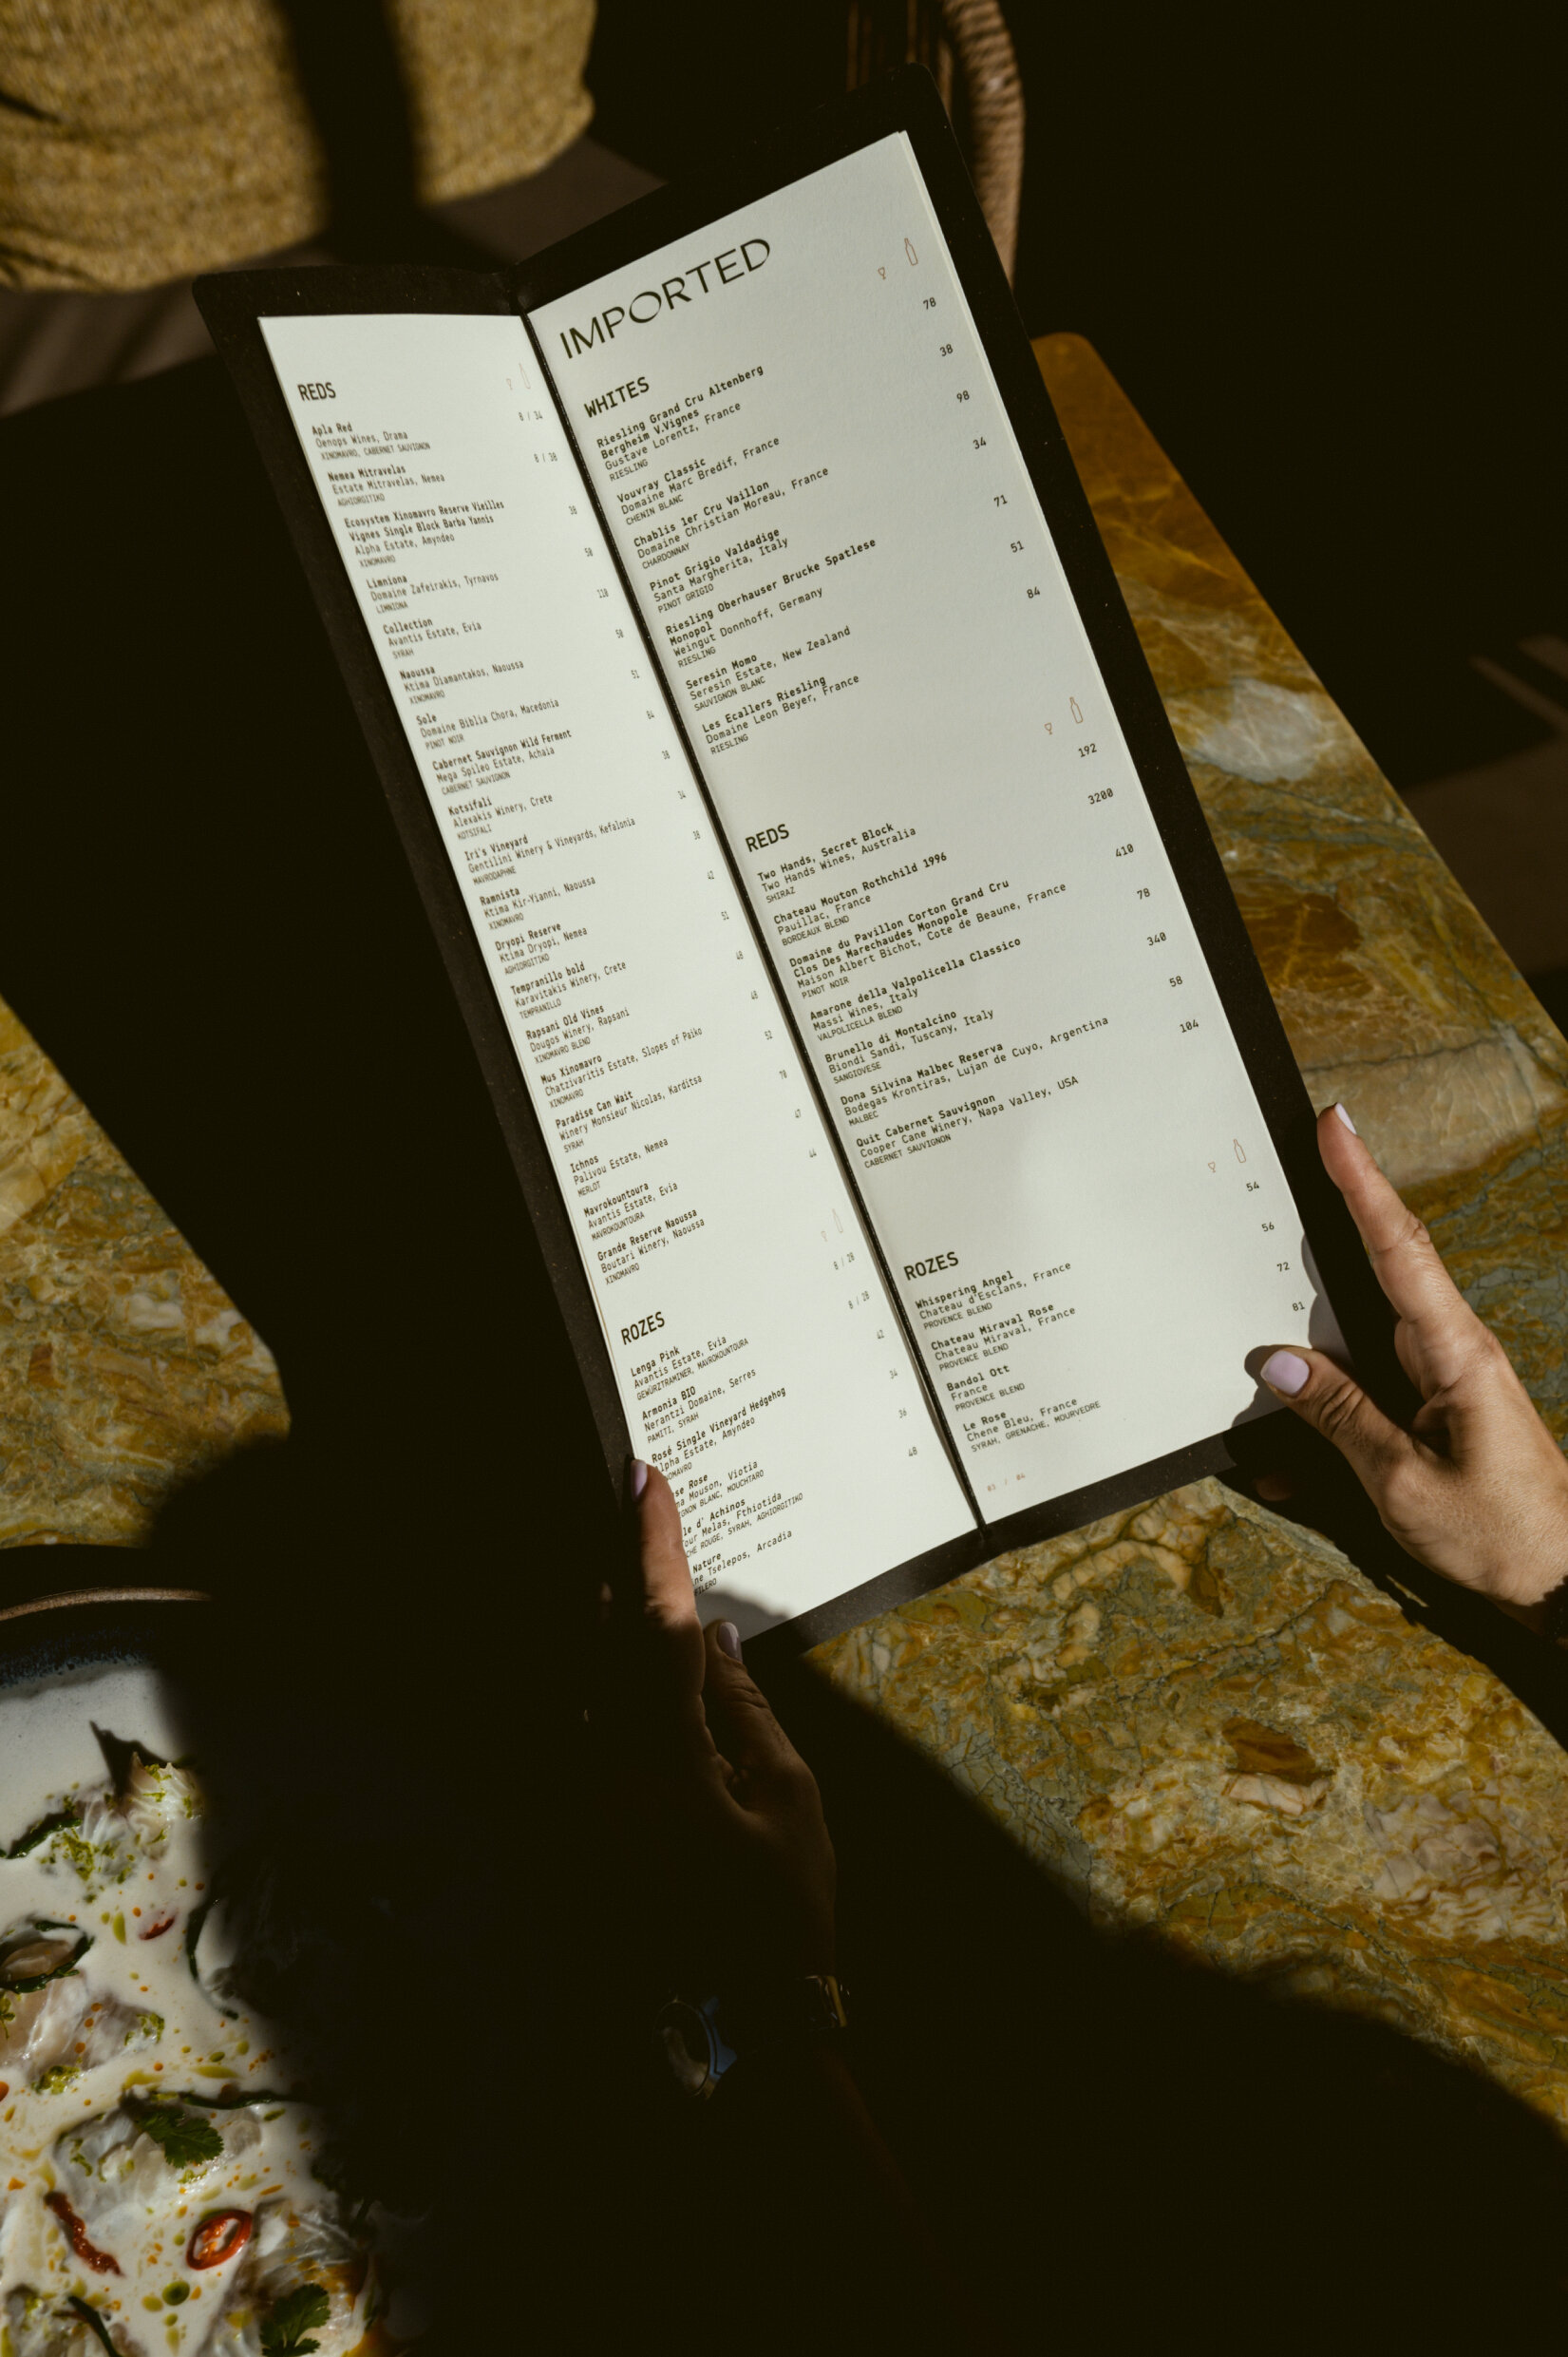 REDS
Apla Red
8 / 34
Oenops Wines, Drama
XINOMAVRO, CABERNET SAUVIGNON
Nemea Mitravelas
8 / 30
Estate Mitravelas, Nemea
AGHIORGITIKO
Ecosystem Xinomavro Reserve Vieilles
Vignes Single Block Barba Yannis
Alpha Estate, Amyndeo
XINOMAVRO
Limniona
50
Domaine Zafeirakis, Tyrnavos
LIMNIONA
Collection
110
Avantis Estate, Evia
SYRAH
Naoussa
50
Ktima Diamantakos, Naoussa
XINOMAVRO
Sole
51
Domaine Biblia Chora, Macedonia
PINOT NOIR
Cabernet Sauvignon Wild Ferment
84
Mega Spileo Estate, Achaia
CABERNET SAUVIGNON
Kotsifali
Alexakis Winery, Crete
KOTSIFALI
Iri's Vineyard
34
Gentilini Winery & Vineyards, Kefalonia
MAVRODAPHNE
Ramnista
Ktima Kir-Yianni, Naoussa
XINOMAVRO
Dryopi Reserve
42
Ktima Dryopi, Nemea
AGHIORGITIKO
Tempranillo bold
51
Karavitakis Winery, Crete
TEMPRANILLO
Rapsani Old Vines
Dougos Winery, Rapsani
XINOMAVRO BLEND
Mus Xinomavro
Chatzivaritis Estate, Slopes of Paiko
XINOMAVRO
Paradise Can Wait
52
Winery Monsieur Nicolas, Karditsa
SYRAH
Ichnos
70
Palivou Estate, Nemea
MERLOT
Mavrokountoura
47
Avantis Estate, Evia
MAVROKOUNTOURA
Grande Reserve Naoussa
44
Boutari Winery, Naoussa
XINOMAVRO
ROZES
Lenga Pink
8 / 28
Avantis Estate, Evia
GEWÜRZTRAMINER, MAVROKOUNTOURA
Armonia BIO
8 / 28
Nerantzi Domaine, Serres
PAMITI, SYRAH
Rosé Single Vineyard Hedgehog
42
Alpha Estate, Amyndeo
Rose
34
Mouson, Viotia
BLANC, MOUCHTARO
d' Achinos
36
Melas, Fthiotida
ROUGE, SYRAH, AGHIORGITIKO
Nature
48
Tselepos, Arcadia
IMPORTED
WHITES
Riesling Grand Cru Altenberg
78
Bergheim V.Vignes
Gustave Lorentz, France
RIESLING
Vouvray Classic
38
Domaine Marc Bredif, France
CHENIN BLANC
Chablis 1er Cru Vaillon
98
Domaine Christian Moreau, France
CHARDONNAY
Pinot Grigio Valdadige
34
Santa Margherita, Italy
PINOT GRIGIO
Riesling Oberhauser Brucke Spatlese
71
Monopol
Weingut Donnhoff, Germany
RIESLING
Seresin Momo
51
Seresin Estate, New Zealand
SAUVIGNON BLANC
Les Ecallers Riesling
84
Domaine Leon Beyer, France
RIESLING
REDS
Two Hands, Secret Block
192
Two Hands Wines, Australia
SHIRAZ
Chateau Mouton Rothchild 1996
3200
Pauillac, France
BORDEAUX BLEND
Domaine du Pavillon Corton Grand Cru
410
Clos Des Marechaudes Monopole
Maison Albert Bichot, Cote de Beaune, France
PINOT NOIR
Amarone della Valpolicella Classico
78
Massi Wines, Italy
VALPOLICELLA BLEND
Brunello di Montalcino
340
Biondi Sandi, Tuscany, Italy
SANGIOVESE
Dona Silvina Malbec Reserva
58
Bodegas Krontiras, Lujan de Cuyo, Argentina
MALBEC
Quit Cabernet Sauvignon
104
Cooper Cane Winery, Napa Valley, USA
CABERNET SAUVIGNON
ROZES
Whispering Angel
54
Chateau d'Esclans, France
PROVENCE BLEND
Chateau Miraval Rose
56
Chateau Miraval, France
PROVENCE BLEND
Bandol Ott
72
France
PROVENCE BLEND
Le Rose
81
Chene Bleu, France
SYRAH, GRENACHE, MOURVEDRE